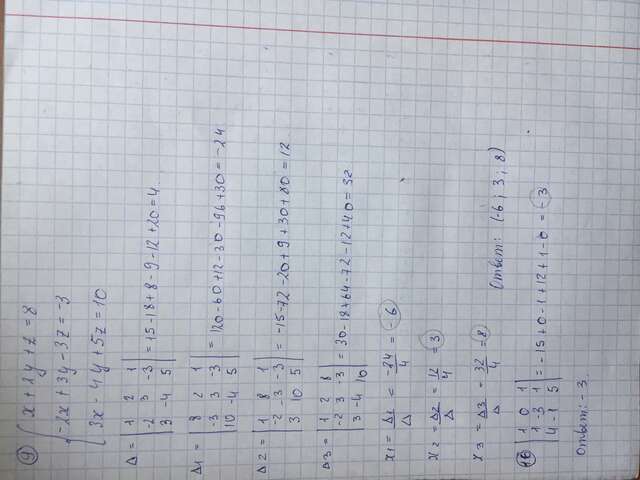 9) x + 2y + z = 8
-2x + 3y - 3z = -3
3x - 4y + 5z = 10
Δ = | 1 2 1 |
| -2 3 -3 | = 15 - 18 + 8 - 9 - 12 + 20 = 4.
| 3 -4 5 |
Δ1 = | 8 2 1 |
| -3 3 -3 | = 120 - 60 + 12 - 30 - 96 + 30 = -24
| 10 -4 5 |
Δ2 = | 1 8 1 |
| -2 -3 -3 | = -15 - 72 - 20 + 9 + 30 + 80 = 12
| 3 10 5 |
Δ3 = | 1 2 8 |
| -2 3 -3 | = 30 - 18 + 64 - 72 - 12 + 40 = 32
| 3 -4 10 |
x1 = Δ1/Δ = -24/4 = -6
x2 = Δ2/Δ = 12/4 = 3
x3 = Δ3/Δ = 32/4 = 8
Ответ: (-6; 3; 8)
10) | 1 0 1 |
| 1 -3 1 | = -15 + 0 - 1 + 12 + 1 - 0 = -3
| 4 -1 5 |
Ответ: -3.